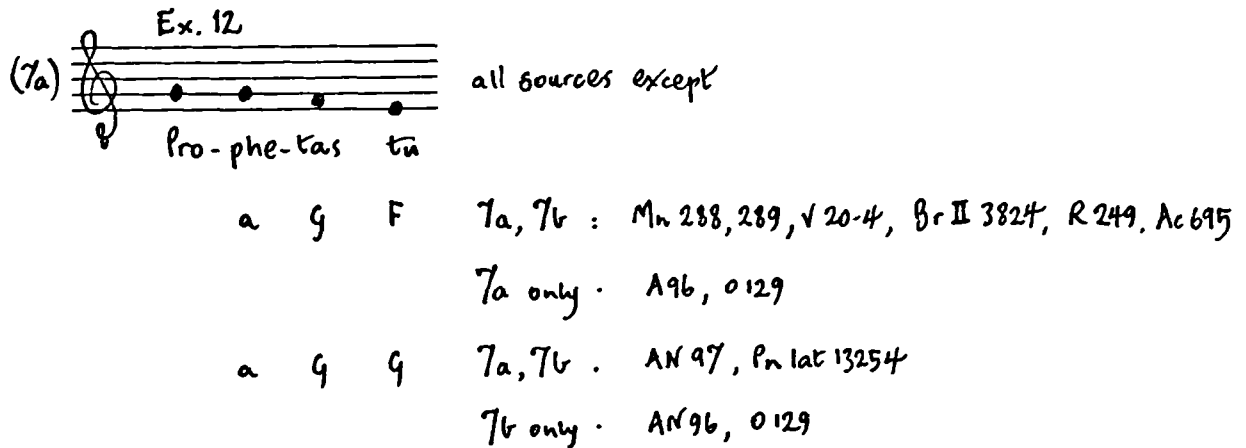 Ex. 12
(7a) all sources except
Pro-phe-tas tu
a G F 7a, 7b : Mn 288, 289, V 20-4, Br II 3824, R 249, Ac 695
7a only . A96, O 129
a G G 7a, 7b . AN 97, Pn lat 13254
7b only . AN96, O 129